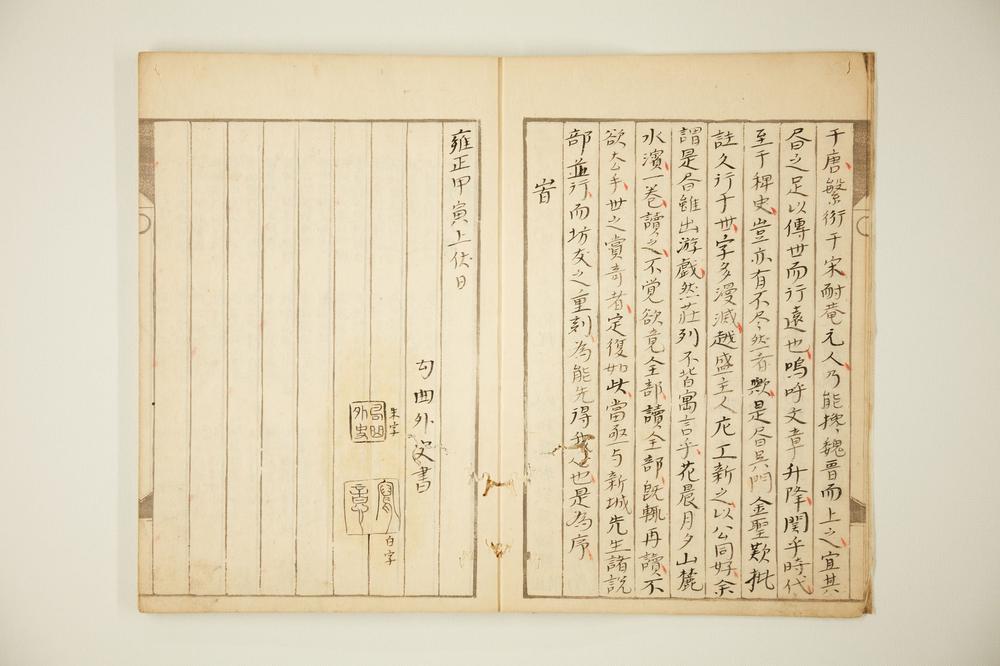 于唐繁衍于宋耐菴元人乃能擾魏晋而上之宜其
昏之足以傳世而行遠也嗚呼文章升降関乎時代
至于稗史豈亦有不尽然者歟是昏吳門金聖歎批
註久行于世字多漫滅越盛主人庀工新之以公同好余
謂是昏雖出游戲然荘列不皆寓言乎花晨月夕山麓
水濱一卷讀之不覚欲竟全部讀全部既輒再讀不
欲去手世之賞奇者定復如此當亟与新城先生諸説
部並行而坊友之重刻為能先得我心也是為序
旹
雍正甲寅上伏日
勾曲外史書
朱字
勾曲外史
白字